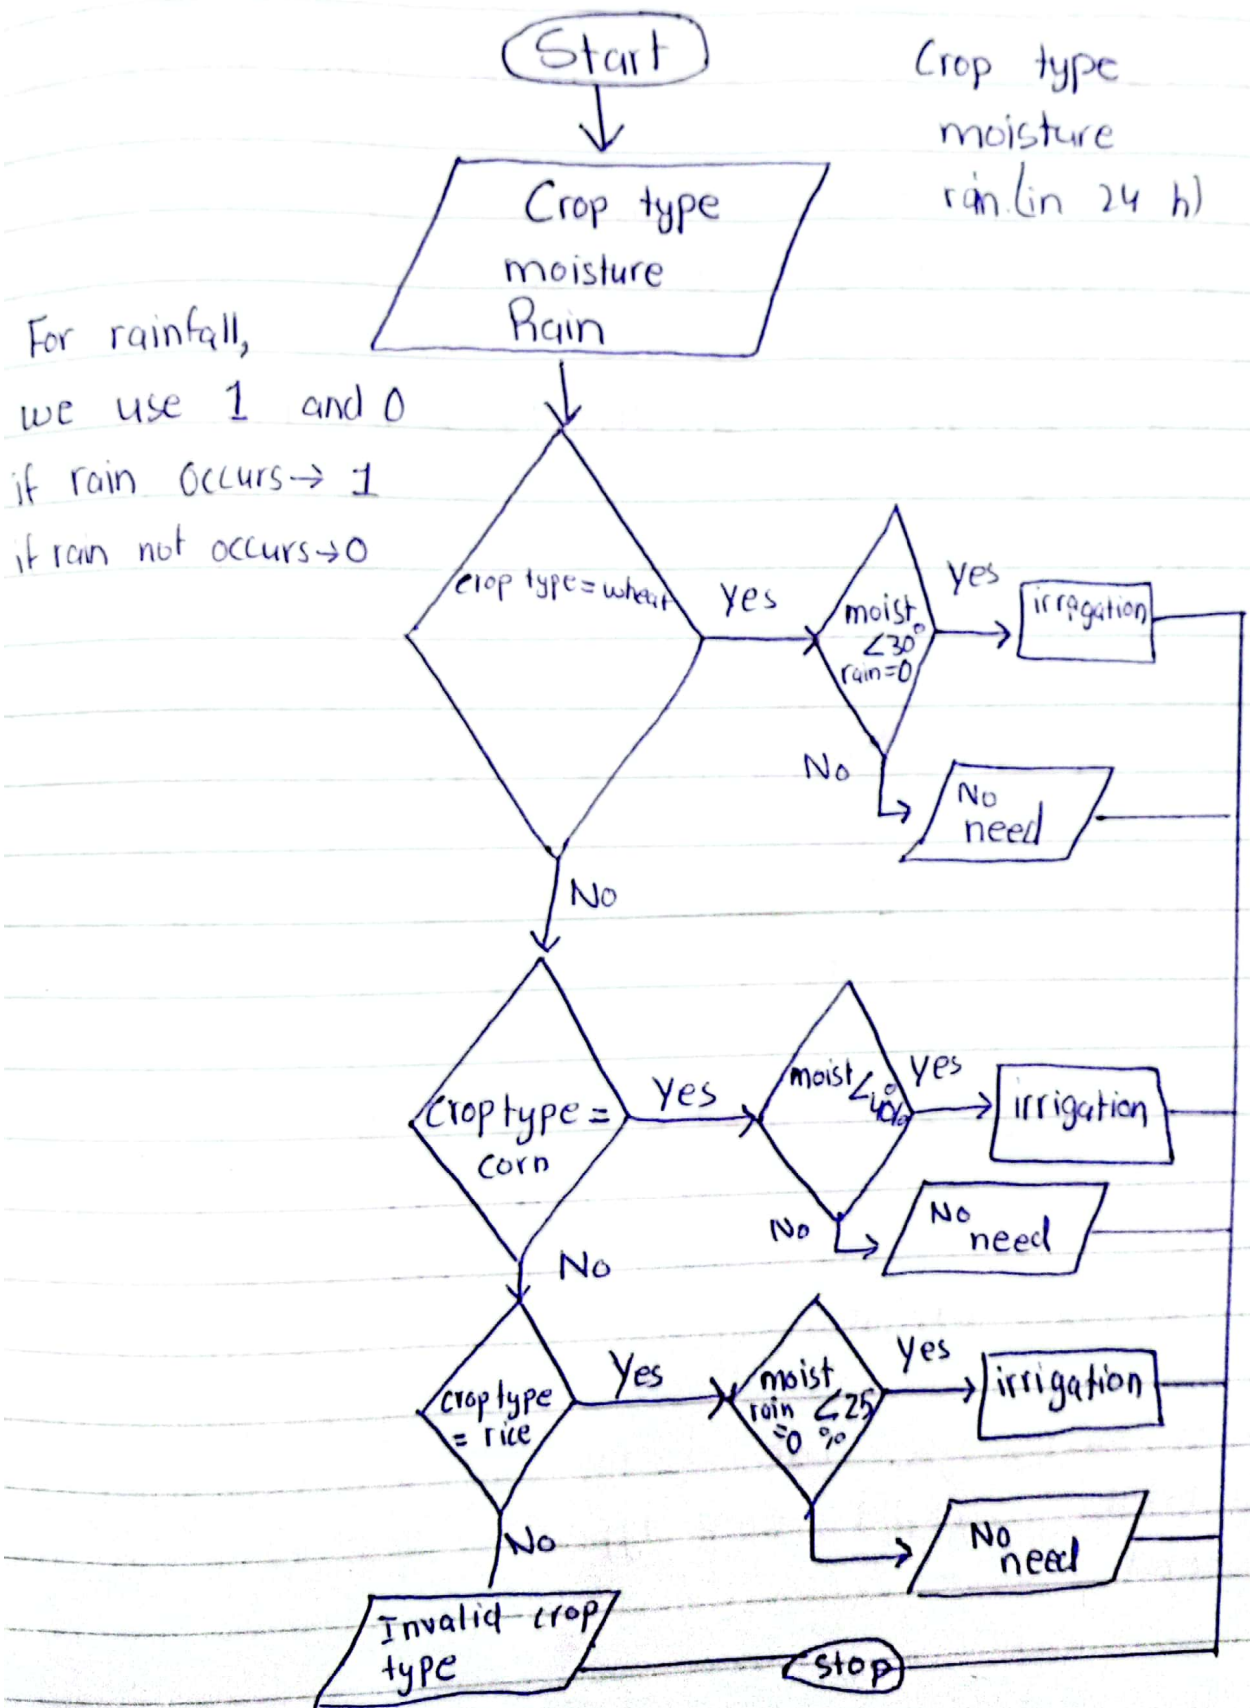 Start
Crop type
moisture
rain (in 24 h)
Crop type
moisture
Rain
For rainfall,
we use 1 and 0
if rain occurs→ 1
if rain not occurs→0
crop type=wheat
yes
moist
<30°
rain=0
yes
irrigation
No
No
need
No
Crop type =
corn
yes
moist <40%
yes
irrigation
No
No
need
No
crop type
= rice
Yes
moist
rain <25
=0 %
yes
irrigation
No
need
No
Invalid crop
type
stop